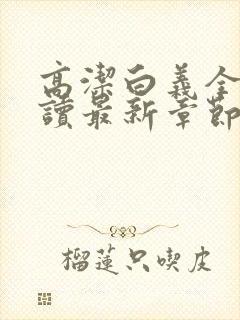 高潔白義全
讀最新章節
榴蓮只喫皮